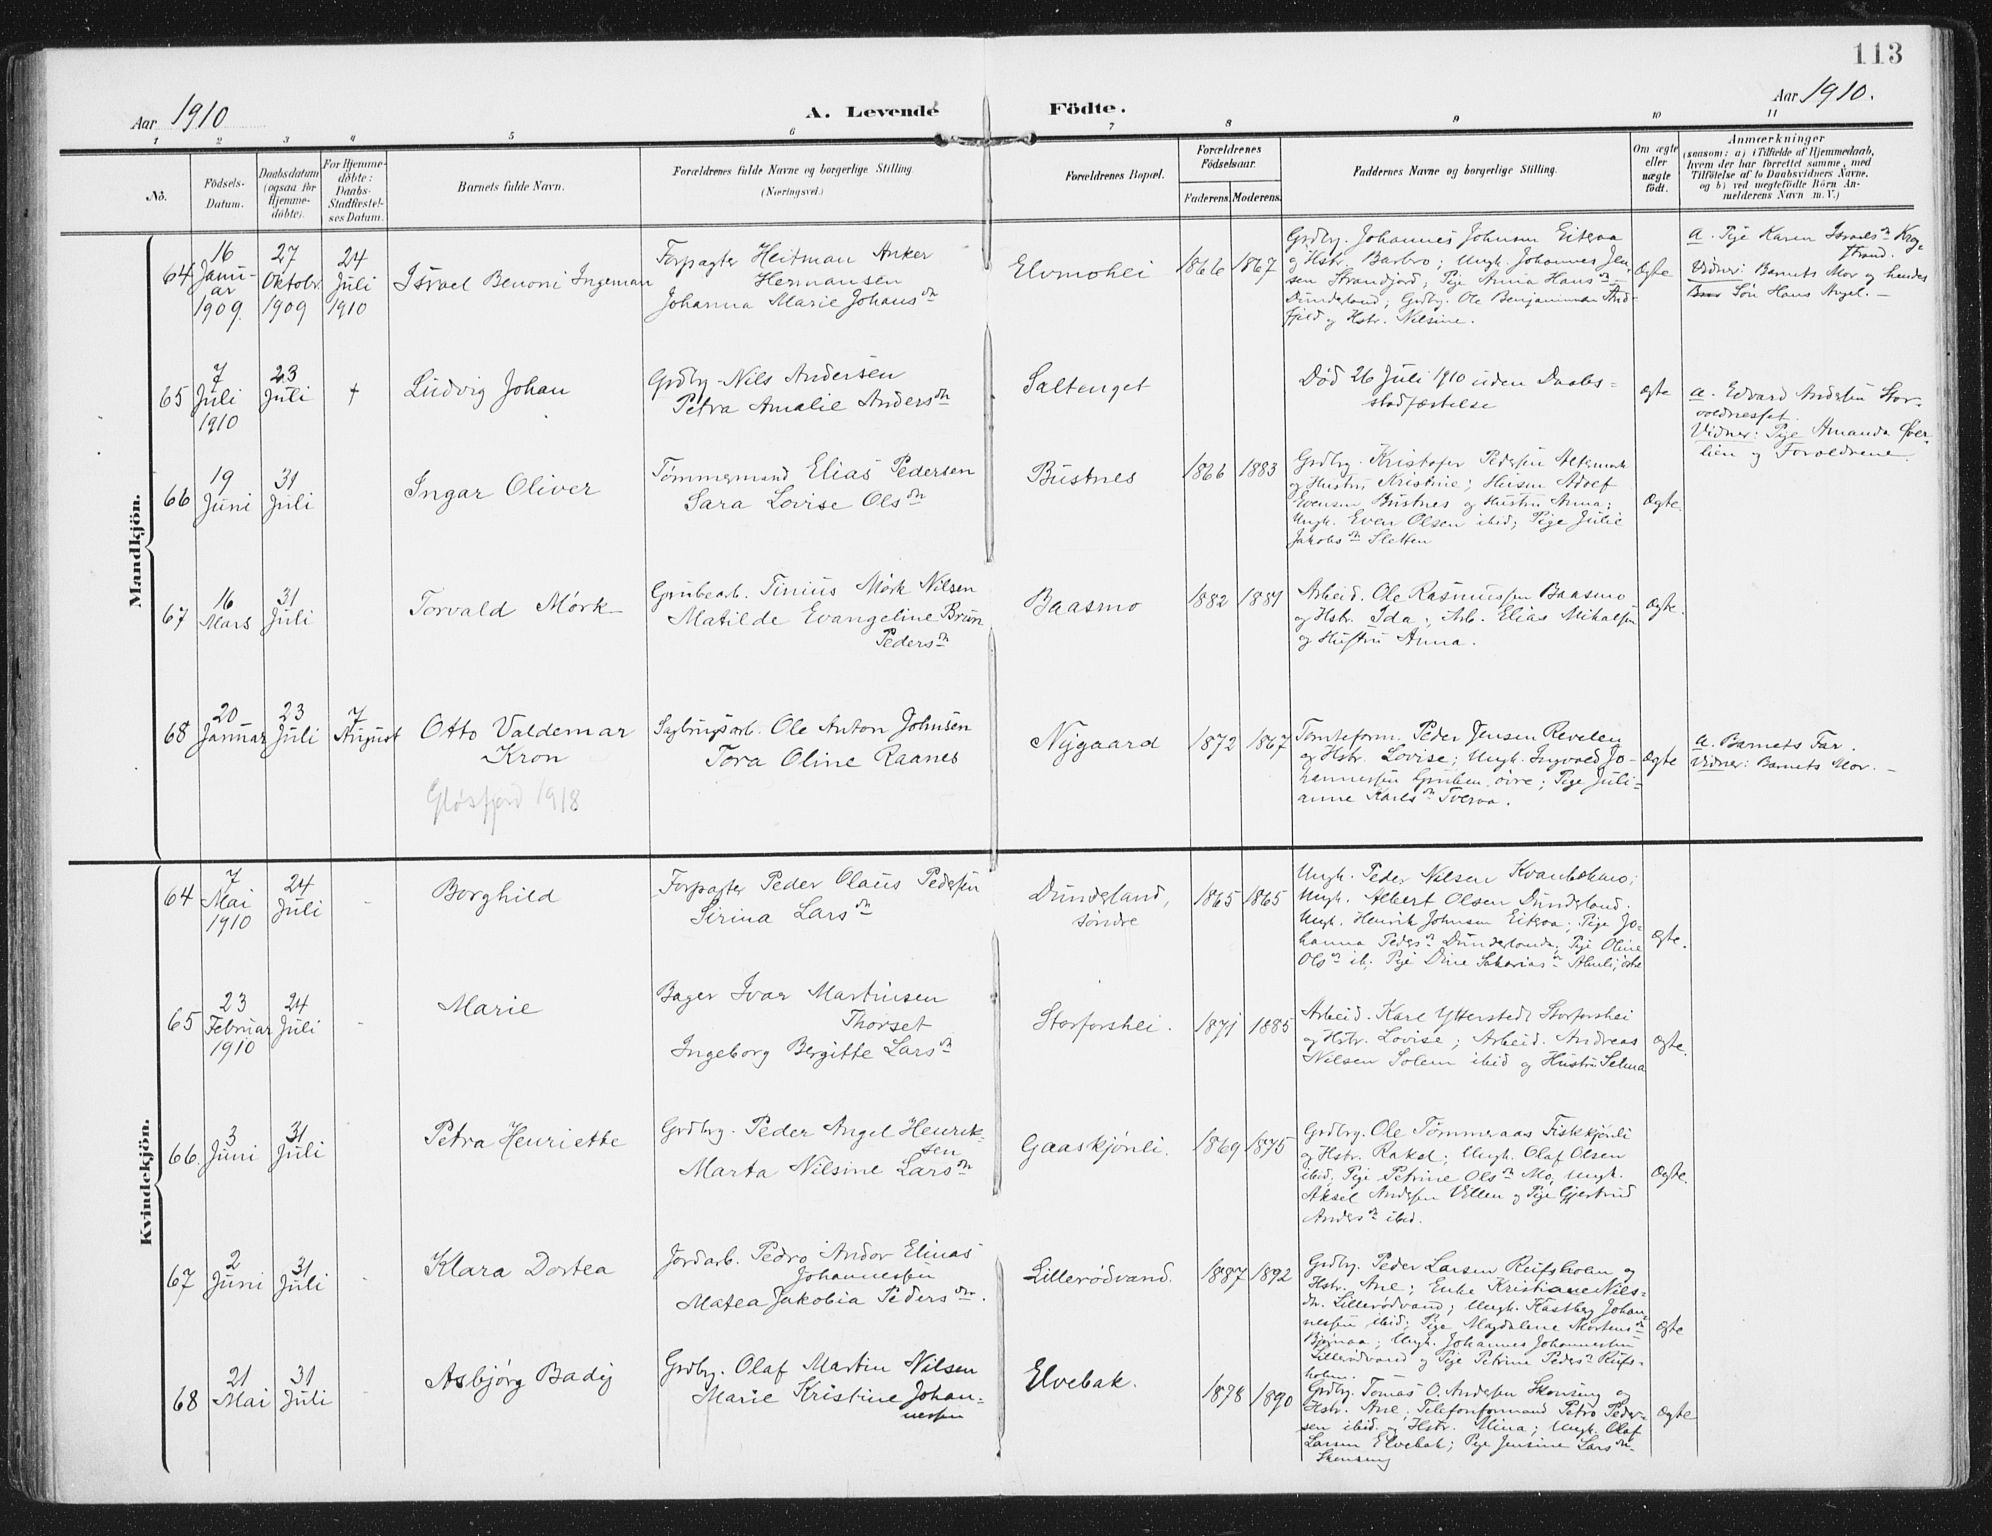 113
Aar 1910
A. Levende Födte.
Aar 1910.
1 2 3 4 5 6 7 8 9 10 11
No.
Födsels-
Datum.
Daabsdatum
(ogsaa for
Hjemme-
döbte).
For Hjemme-
döbte:
Daabs-
Stadfæstel-
ses Datum.
Barnets fulde Navn.
Forældrenes fulde Navne og borgerlige Stilling.
(Næringsvei.)
Forældrenes Bopæl.
Forældrenes
Födselsaar.
Faderens. Moderens.
Faddernes Navne og borgerlige Stilling.
Om ægte
eller
uægte
födt.
Anmærkninger
(saasom: a) i Tilfælde af Hjemmedaab,
hvem der har forrettet samme, med
Tilföielse af to Daabsvidners Navne,
og b) ved uegtefödte Börn An-
melderens Navn m. V.)
Mandkjön.
64
16
Janu-
ar
1909
27
Oktobr.
1909
24
Juli
1910
Israel Benoni Ingeman
Forpagter Heitman Anker
Hermansen
Johanna Marie Johans dn
Elvmohei
1866 1867
Grdbr. Johannes Johnsen Eiteraa
og Hstr. Barbro; Ungk. Johannes Jen-
sen Strandjord; Pige Anna Hans dn
Dunderland; Grdbr. Ole Benjaminsen
og Hstr. Nilsine.
ægte
a. Pige Karen Israels dn Krog-
strand.
Vidner: Barnets Mor og hendes
Søn Hans Angel. —
65
7
Juli
1910
23
Juli
+
Ludvig Johan
Grdbr. Nils Andersen
Petra Amalie Anders dn
Saltenget
Død 26 Juli 1910 uden Daabs=
stadfæstelse
ægte
a. Edvard Andersen Stor-
voldnesset.
Vidner: Pige Amanda Øver-
lien og Forældrene
66
19
Juni
31
Juli
Ingar Oliver
Tømmermand Elias Pedersen
Sara Lovise Ols dn
Bustnes
1866 1883
Grdbr. Kristofer Pedersen
og Hustru Kristine; Husm Adolf
Evensen Bustnes og Hustru Anna;
Ungk. Even Olsen ibid; Pige Julie
Jakobs dn Sletten
Ægte.
67
16
Mars
31
Juli
Torvald Mørk
Grubearb. Tinius Mørk Nilsen
Matilde Evangeline Brun
Peders dn
Baasmo
1882 1881
Arbeid. Ole Rasmussen Baasmo
og Hstr. Ida; Arb. Elias Mikalsen
og Hustru Anna.
Ægte.
68
20
Januar
23
Juli
7
August
Otto Valdemar
Kron
1918
Sagbrugsarb. Ole Anton Johnsen
Tora Oline Raanes
Nygaard
1872 1867
Tomteform. Peder Jensen Revelen
og Hstr. Lovise; Ungk. Ingvald Jo-
hannessen Gruben øvre; Pige Juli-
anne Karls dn Tveraa.
ægte
a. Barnets Far.
Vidner: Barnets Mor. —
Kvindekjön.
64
7
Mai
1910
24
Juli
Borghild
Forpagter Peder Olaus Pedersen
Sirina Lars dn
Dunderland,
søndre
1865 1865
Ungk. Peder Nilsen
Ungk. Albert Olsen Dunderland.
Ungk. Henrik Johnsen Eiteraa; Pige Jo-
hanna Peders dn Dunderland; Pige Oline
Ols dn ib; Pige Dine Sakarias dn
Ægte.
65
23
Februar
1910
24
Juli
Marie
Bager Ivar Martinsen
Thorset
Ingeborg Bergitte Lars dn
Storforshei.
1871 1885
Arbeid. Karl Ytterstedt Storforshei
og Hstr. Lovise; Arbeid. Andreas
Nilsen Solem ibid og Hustru Selma
Ægte.
66
3
Juni
31
Juli
Petra Henriette
Grdbr. Peder Angel Henrik-
sen
Marta Nilsine Lars dn
Gaaskjønli.
1869 1875
Grdbr. Ole Tømmeraas Fiskkjønli
og Hstr. Rakel; Ungk. Olaf Olsen
ibid; Pige Petrine Ols dn Mo, Ungk.
Aksel Andersen Villen og Pige Gjertrud
Anders dn ibid.
Ægte.
67
2
Juni
31
Juli
Klara Dortea
Jordarb. Pedro Andor Elinas
Johannessen
Matea Jakobia Peders dn.
Lillerødvand.
1887 1892
Grdbr. Peder Larsen Reifsholm og
Hstr. Ane; Enke Kristiane Nils-
dn. Lillerødvand; Ungk. Hastberg Johan-
nessen ibid; Pige Magdalene Mortens dn
Bjørnaa; Ungk. Johannes Johannessen
Lillerødvand og Pige Petrine Peders dn Reifs-
holm.
ægte
68
21
Mai
31
Juli
Asbjørg Badig
Grdbr. Olaf Martin Nilsen
Marie Kristine Johan-
nessen
Elvebak.
1878 1890
Grdbr. Tomas O. Andersen Skonseng og
Hstr. Ane; Telefonformand Petro Peder-
sen ibid. og Hstr. Mina; Ungk. Olaf
Larsen Elvebak; Pige Jensine Lars dn
Skonseng
Ægte